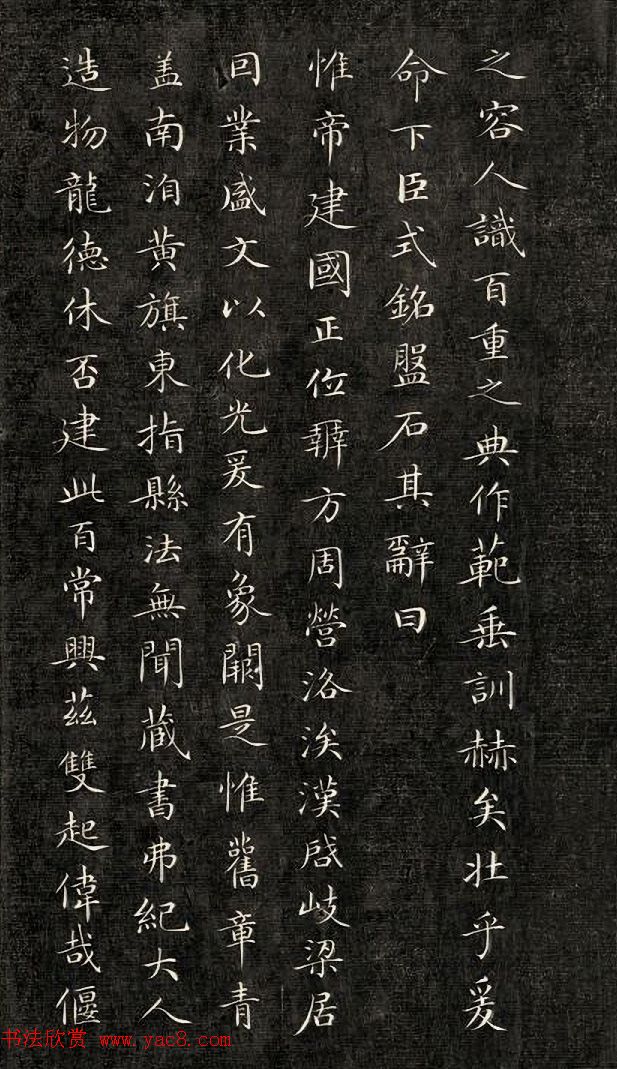 之容人識百重之典作範垂訓赫矣壯乎爰
命下臣式銘盤石其辭曰
惟帝建國正位辨方周營洛涘漢啟岐梁居
因業盛文以化光爰有象闕是惟舊章青
盖南洎黄旗東指縣法無聞藏書弗紀大人
造物龍德休否建此百常興茲雙起偉哉偃
书法欣赏 www.yac8.com